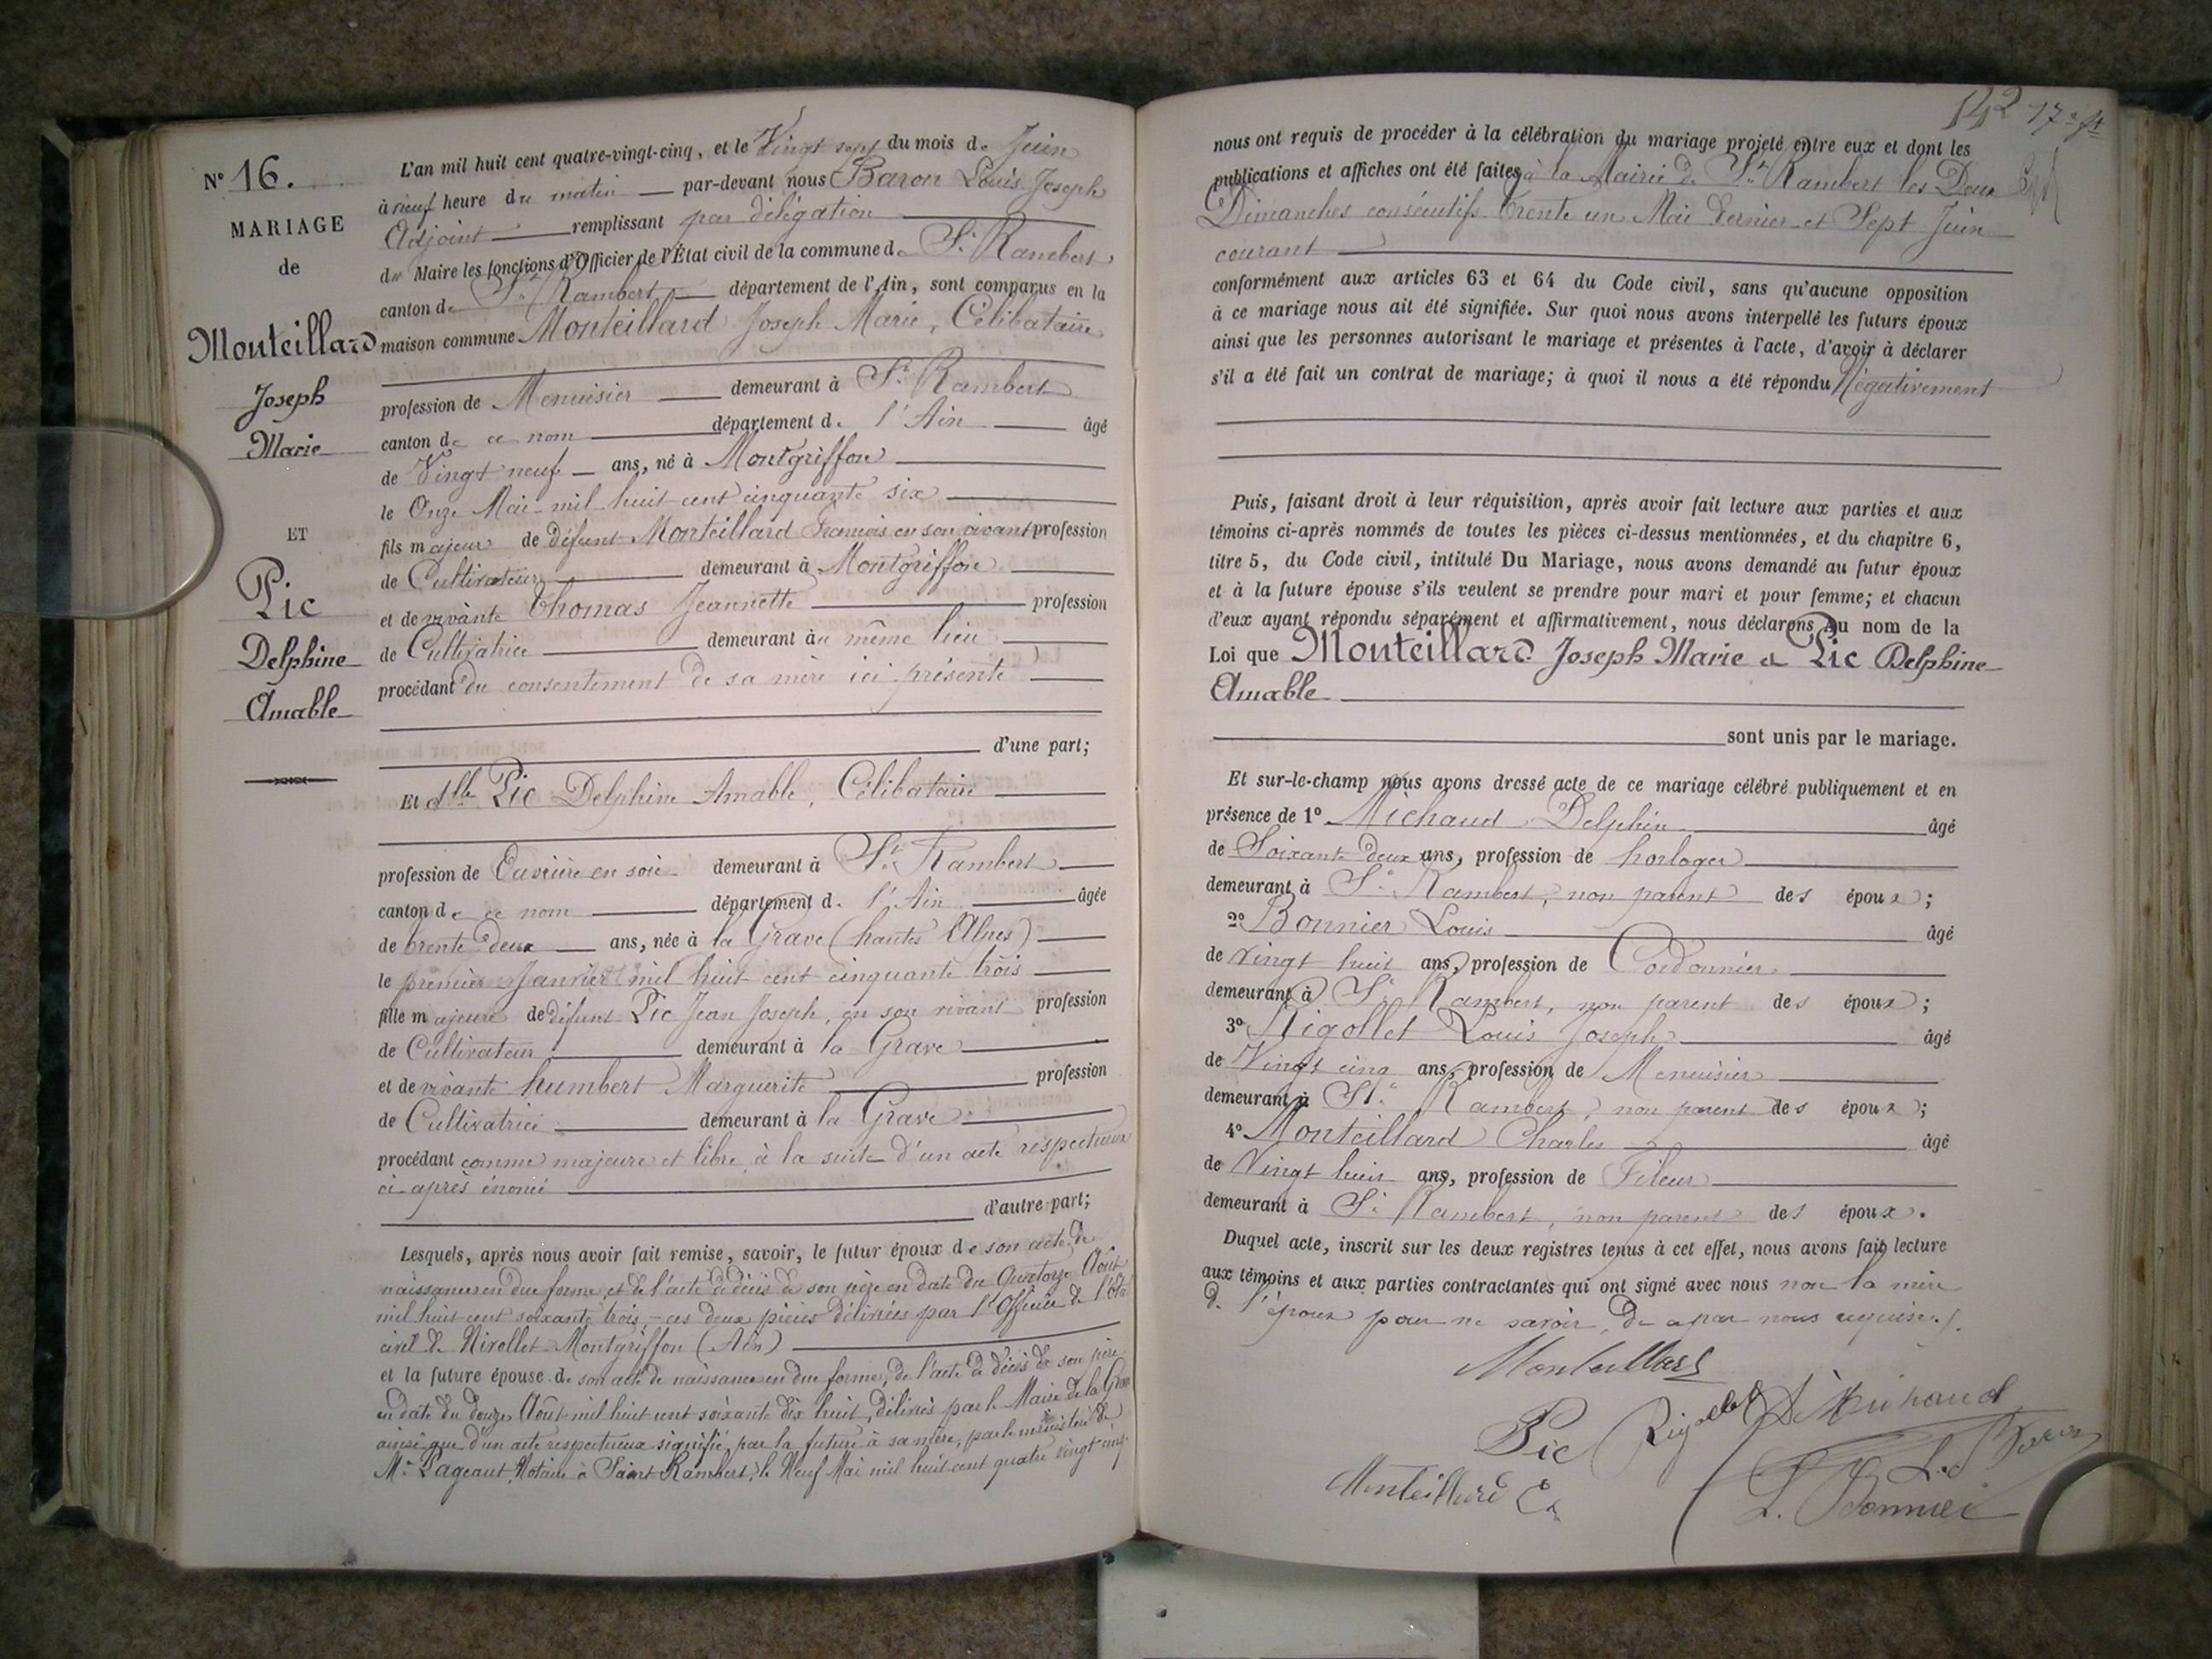 N° 16.
MARIAGE
de
Monteillard
Joseph
Marie
ET
Pic
Delphine
Amable
L'an mil huit cent quatre-vingt-cinq, et le Vingt sept du mois de Juin
à neuf heure du matin par-devant nous Baron Louis Joseph
Adjoint remplissant par délégation
du Maire les fonctions d'Officier de l'État civil de la commune de St Rambert
canton de St Rambert département de l'Ain, sont comparus en la
maison commune Monteillard Joseph Marie, Célibataire
profession de Menuisier demeurant à St Rambert
canton de ce nom département de l'Ain âgé
de Vingt neuf ans, né à Montgriffon
le Onze Mai mil huit cent cinquante six
fils majeur de défunt Monteillard François en son vivant profession
de Cultivateur demeurant à Montgriffon
et de vivante Thomas Jeannette profession
de Cultivatrice demeurant au même lieu
procédant du consentement de sa mère ici présente
d'une part;
Et dlle Pic Delphine Amable, Célibataire
profession de Ouvrière en soie demeurant à St Rambert
canton de ce nom département de l'Ain âgée
de trente deux ans, née à la Grave (hautes Alpes)
le premier Janvier mil huit cent cinquante trois
fille majeure de défunt Pic Jean Joseph, en son vivant profession
de Cultivateur demeurant à la Grave
et de vivante humbert Marguerite profession
de Cultivatrice demeurant à la Grave
procédant comme majeure et libre à la suite d'un acte respectueux
ci-après énoncé
d'autre part;
Lesquels, après nous avoir fait remise, savoir, le futur époux de son acte de
naissance en due forme et de l'acte de décès de son père en date du Quatorze Août
mil huit cent soixante trois, - ces deux pièces délivrées par l'Officier de l'état
civil de Nivollet-Montgriffon (Ain)
et la future épouse de son acte de naissance en due forme, de l'acte de décès de son père
en date du douze Août mil huit cent soixante dix huit, délivrés par le Maire de la Grave
ainsi que d'un acte respectueux signifié par la future à sa mère, par le ministère de
Me Pageaut, Notaire à Saint Rambert, le Neuf Mai mil huit cent quatre vingt cinq
142
nous ont requis de procéder à la célébration du mariage projeté entre eux et dont les
publications et affiches ont été faites à la Mairie de St Rambert les Deux
Dimanches consécutifs Trente un Mai dernier et Sept Juin
courant
conformément aux articles 63 et 64 du Code civil, sans qu'aucune opposition
à ce mariage nous ait été signifiée. Sur quoi nous avons interpellé les futurs époux
ainsi que les personnes autorisant le mariage et présentes à l'acte, d'avoir à déclarer
s'il a été fait un contrat de mariage; à quoi il nous a été répondu Négativement
Puis, faisant droit à leur réquisition, après avoir fait lecture aux parties et aux
témoins ci-après nommés de toutes les pièces ci-dessus mentionnées, et du chapitre 6,
titre 5, du Code civil, intitulé Du Mariage, nous avons demandé au futur époux
et à la future épouse s'ils veulent se prendre pour mari et pour femme; et chacun
d'eux ayant répondu séparément et affirmativement, nous déclarons Au nom de la
Loi que Monteillard Joseph Marie et Pic Delphine
Amable
sont unis par le mariage.
Et sur-le-champ nous avons dressé acte de ce mariage célébré publiquement et en
présence de 1° Michaud Delphin âgé
de Soixante deux ans, profession de horloger
demeurant à St Rambert, non parent des époux;
2° Bonnier Louis âgé
de vingt huit ans, profession de Cordonnier
demeurant à St Rambert, non parent des époux;
3° Rigollet Louis Joseph âgé
de Vingt cinq ans, profession de Menuisier
demeurant à St Rambert, non parent des époux;
4° Monteillard Charles âgé
de Vingt huit ans, profession de Fileur
demeurant à St Rambert, non parent des époux.
Duquel acte, inscrit sur les deux registres tenus à cet effet, nous avons fait lecture
aux témoins et aux parties contractantes qui ont signé avec nous non la mère
de l'époux pour ne savoir, de ce par nous requise.
Monteillard
Pic Rigollet D Michaud
Monteillard Ch L. Baron
L. Bonnier